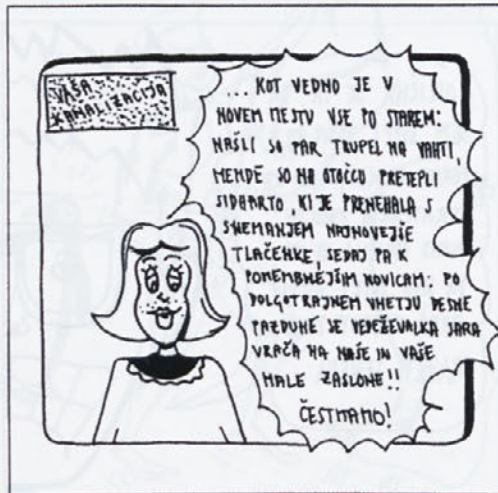 VAŠA
KANALIZACIJA
... KOT VEDNO JE V
NOVEM MESTU VSE PO STAREM:
NAŠLI SO PAR TRUPEL NA YAHTI,
MENDE SO NA OTOČCU PRETEPLI
SIDHARTO, KI JE PRENEHALA S
SNEMANJEM NAJNOVEJŠE
TLAČENKE, SEDAJ PA K
POMEMBNEJŠIM NOVICAM: PO
DOLGOTRAJNEM VNETJU DESNE
PAZDUHE SE VEDEŽEVALKA JARA
VRAČA NA NAŠE IN VAŠE
MALE ZASLONE!!
ČESTITAMO!